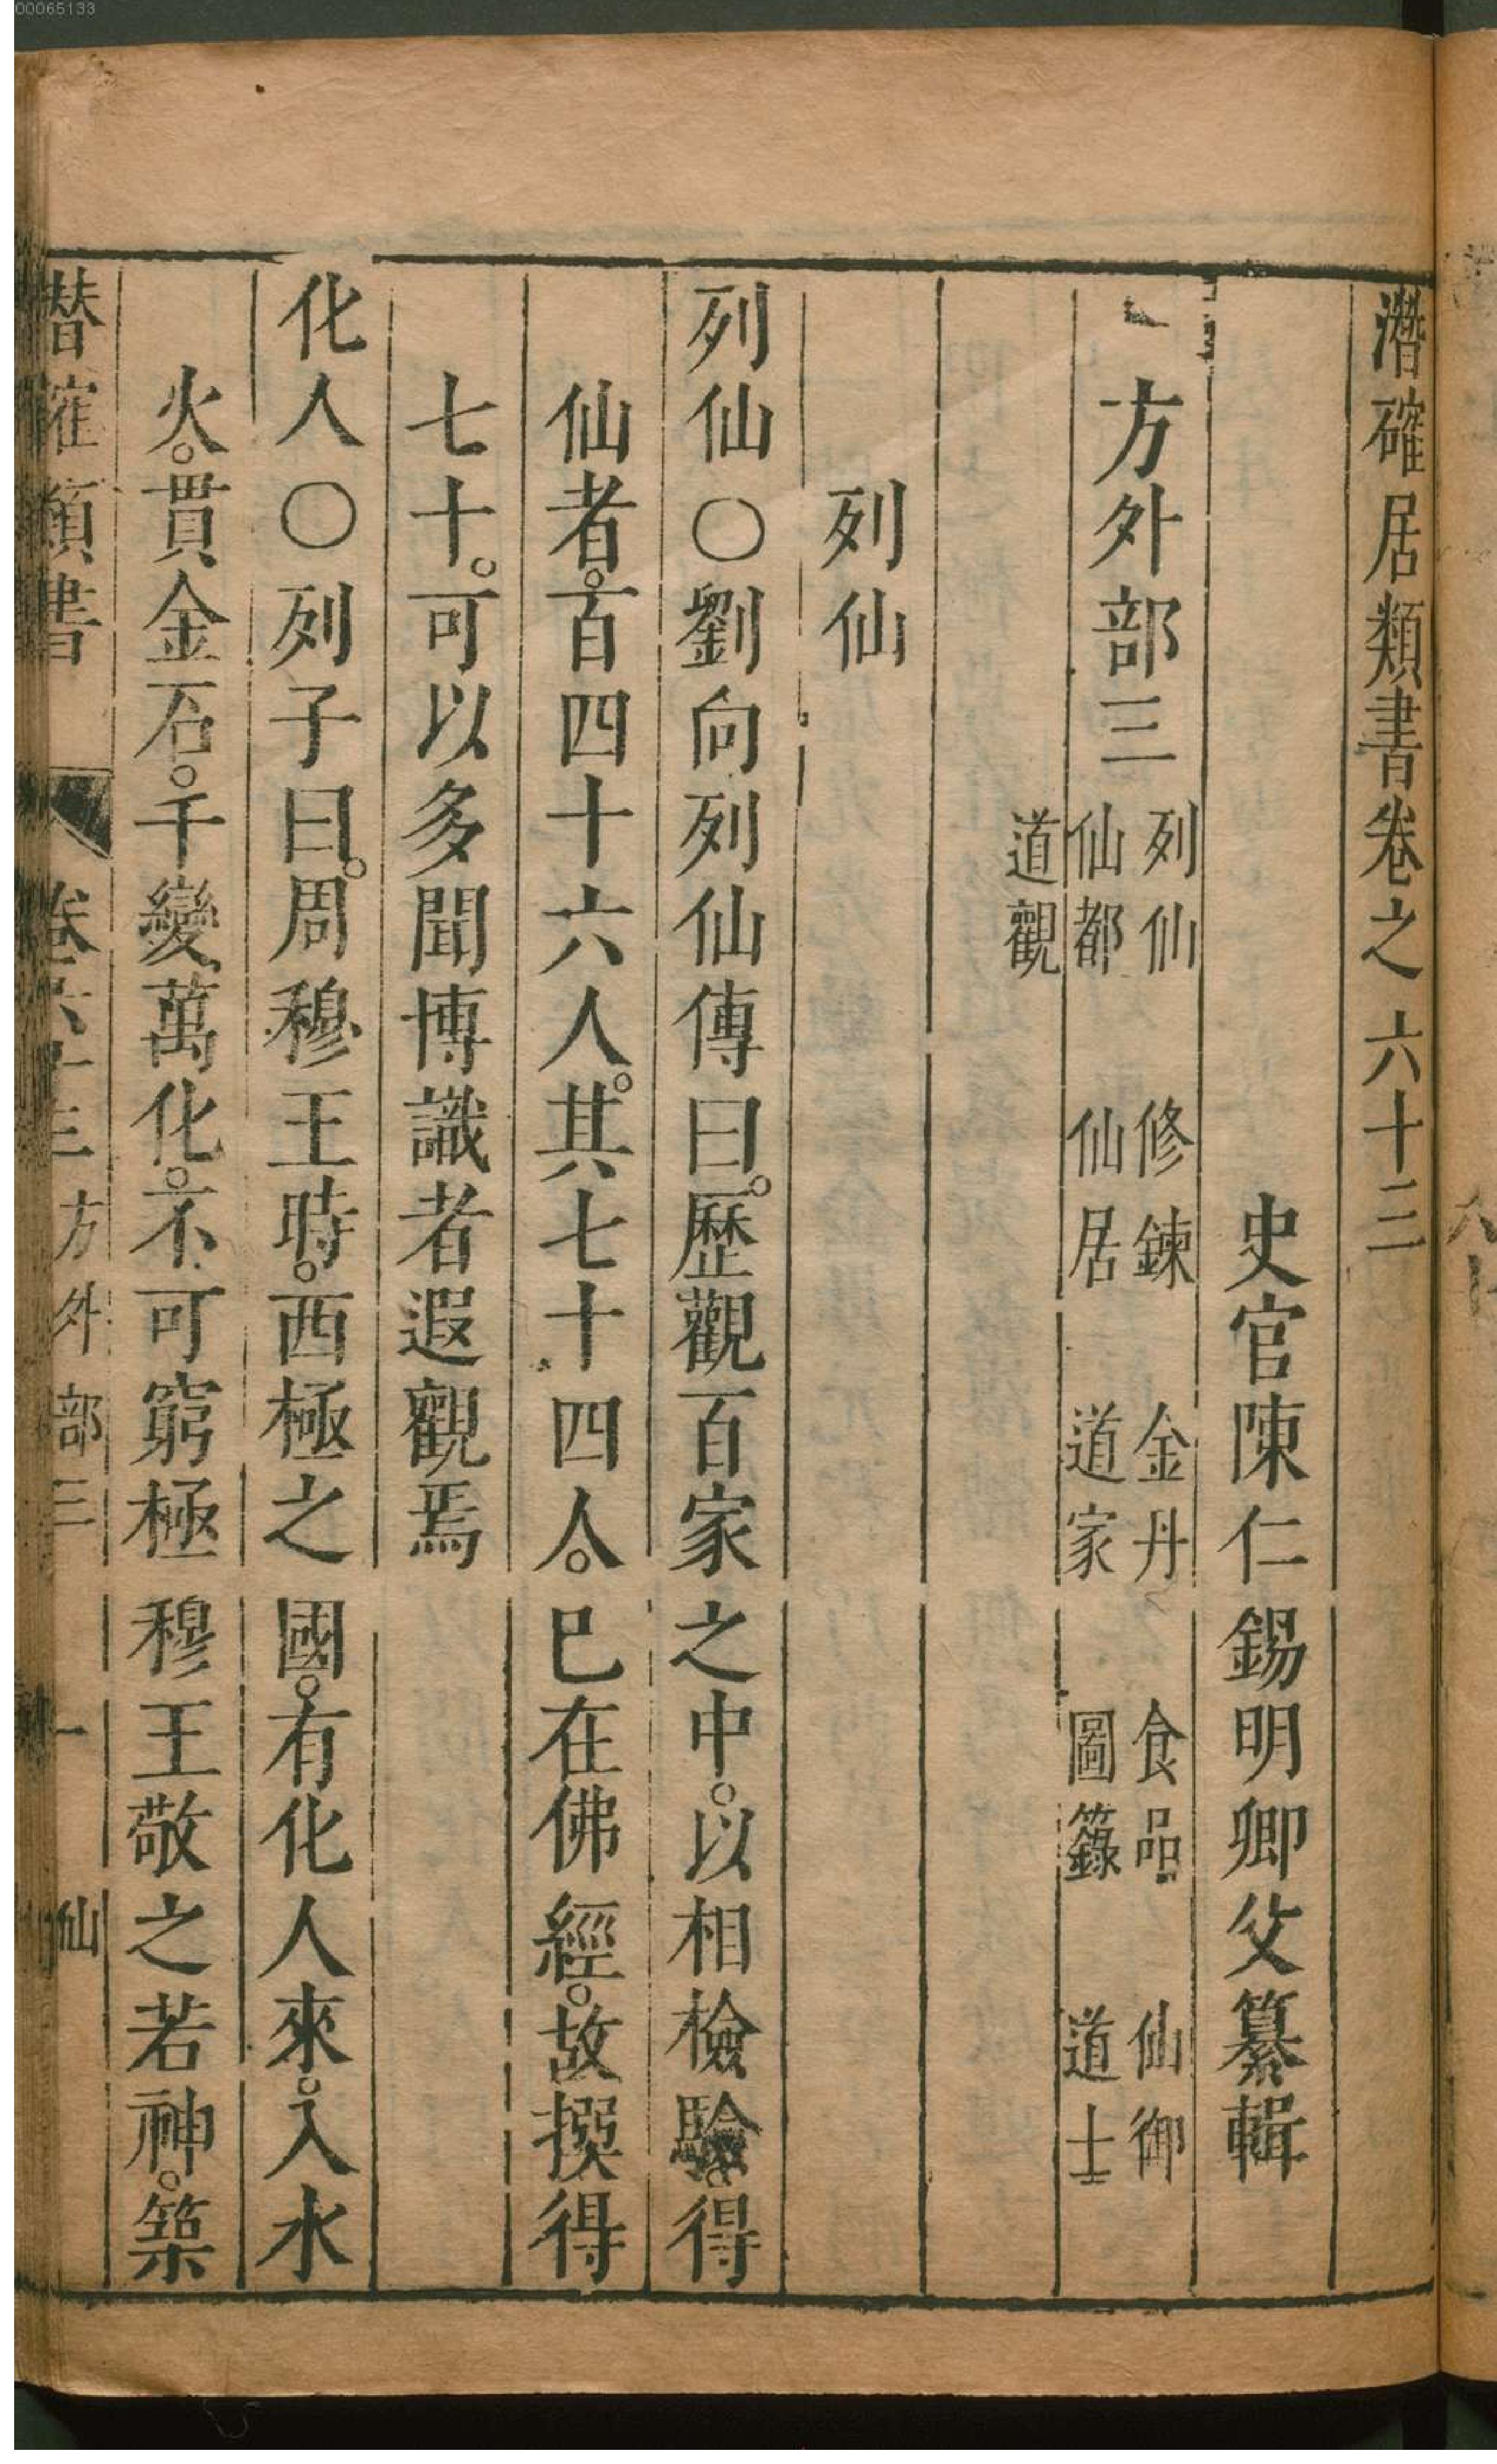 00065133
潛確居類書卷之六十三
史官陳仁錫明卿父纂輯
方外部三
列仙 修鍊 金丹 食品 仙御
仙都 仙居 道家 圖籙 道士
道觀
列仙
列仙〇劉向列仙傳曰。歷觀百家之中。以相檢驗。得
仙者。百四十六人。其七十四人。已在佛經。故撰得
七十。可以多聞博識者遐觀焉
化人〇列子曰。周穆王時。西極之國。有化人來。入水
火。貫金石。千變萬化。不可窮極穆王敬之若神。築
潛確類書 卷六十三 方外部三 一 仙